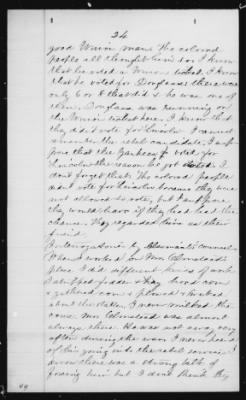 24
good Union man. The colored
people all thought him so. I know
that he voted a Union ticket. I know
that he voted for Douglass; there was
only 6 or 8 that did & he was one of
them. Douglass was running on
the Union ticket here. I know that
they didn't vote for Lincoln. I cannot
remember the rebel candidate. I
that the Yankees voted for
Lincoln the reason he got I
don't forget that. The colored people
didn't vote for Lincoln because they were
not allowed to vote, but I suppose
they would have if they had had the
chance. They regarded him as their
friend.
Interrogatories by Claimant's counsel
I have worked on Mrs Olmstead's
place. I did different kinds of work.
I stripped fodder & hoed corn
gathered corn & plowed & worked
about the I never milked the
cows. Mr Olmstead was almost
always there. He was not away very
often during the war. I never heard
of his going into the rebel service.
I know there was a strong talk of
forcing him but I don't think they